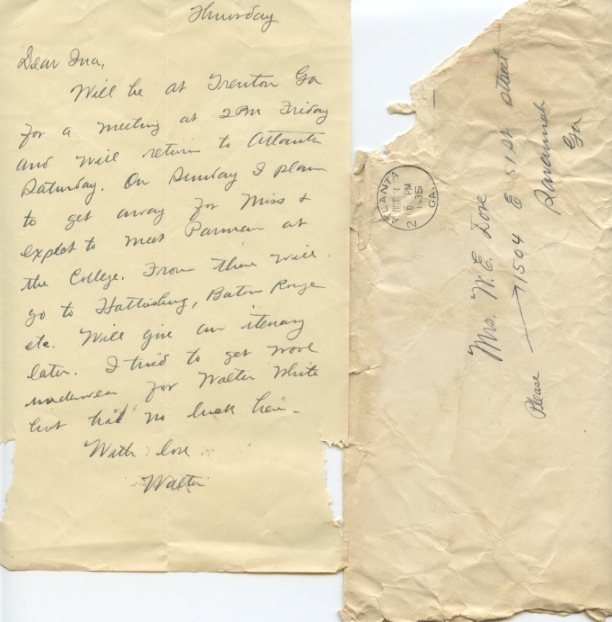 Thursday
Dear Ina,
Will be at Trenton Ga
for a meeting at 2 PM Friday
and will return to Atlanta
Saturday. On Sunday I plan
to get away for Miss &
expect to meet Parman at
the College. From there will
go to Hattisburg, Baton Rouge
etc. Will give an itenary
later. I tried to get wool
underwear for Walter White
but had no luck here.
With love
Walter
ATLANTA
GA.
PM
1935
Mrs. W. E. Dove
1504 E 51st street
Savannah
Ga
Please